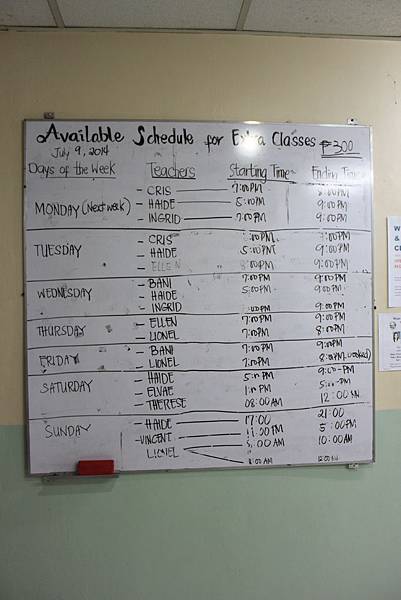 Available Schedule for Extra Classes ₱300
July 9, 2014
Days of the Week Teachers Starting Time Ending Time
MONDAY (Next week) - CRIS 7:00PM 8:00PM
- HAIDE 5:00PM 9:00PM
- INGRID 7:00PM 9:00PM
TUESDAY - CRIS :00PM 9:00PM
- HAIDE 5:00PM 9:00PM
- ELLEN 8:00PM 9:00PM
WEDNESDAY - BANI 7:00PM 9:00PM
- HAIDE 5:00PM 9:00PM
- INGRID :00PM 9:00PM
THURSDAY - ELLEN 7:00PM 9:00PM
- LIONEL 7:00PM 8:00PM
FRIDAY - BANI 7:00PM 9:00PM
- LIONEL 7:00PM 8:00PM
SATURDAY - HAIDE 5:00PM 9:00-PM
- ELVAE 1:00PM 5:00-PM
- THERESE 08:00AM 12:00
SUNDAY - HAIDE 17:00 21:00
- VINCENT 1:00PM 5:00PM
LIONEL :00AM 10:00AM